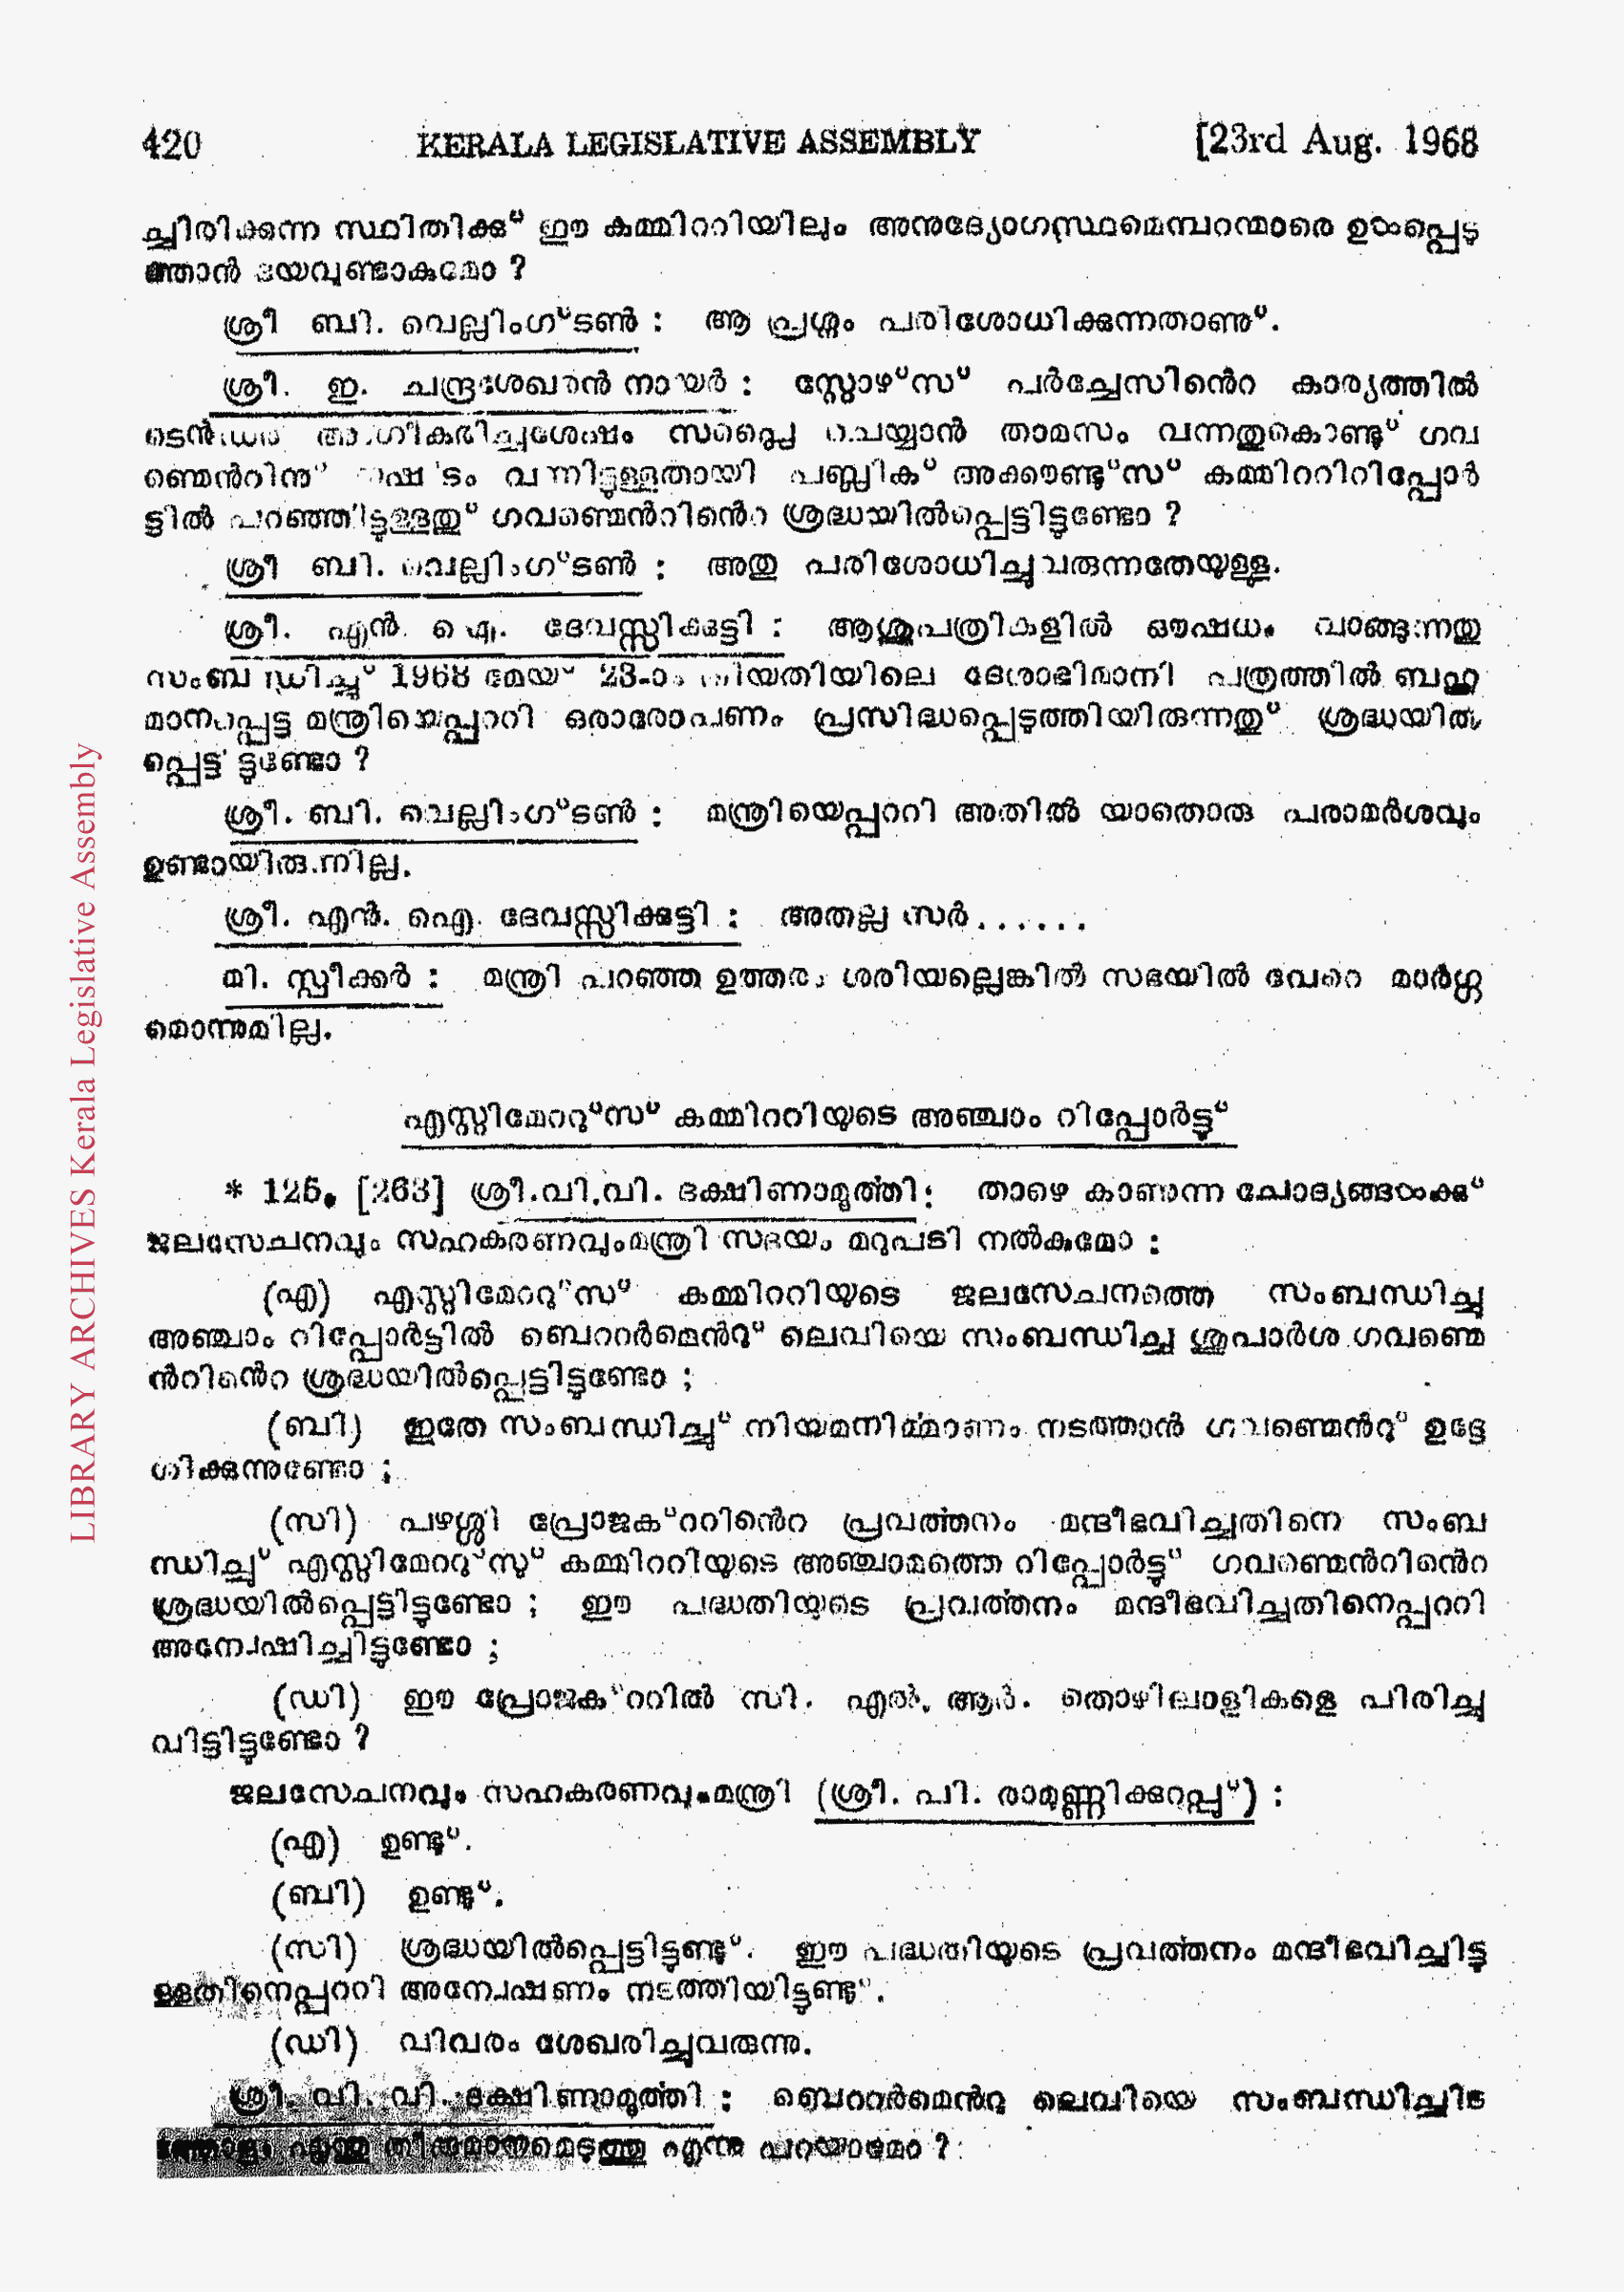 420 KERALA LEGISLATIVE ASSEMBLY [23rd Aug. 1968
ച്ചിരിക്കുന്ന സ്ഥിതിക്കു് ഈ കമ്മിററിയിലും അനുദ്യോഗസ്ഥമെമ്പറന്മാരെ ഉൾപ്പെടു
ത്താൻ ദയവുണ്ടാകുമോ ?
ശ്രീ ബി. വെല്ലിംഗ്ടൺ : ആ പ്രശ്നം പരിശോധിക്കുന്നതാണു്.
ശ്രീ. ഇ. ചന്ദ്രശേഖരൻ നായർ : സ്റ്റോഴ്സ് പർച്ചേസിൻെറ കാര്യത്തിൽ
ടെൻഡർ അംഗീകരിച്ചശേഷം സപ്ലൈ ചെയ്യാൻ താമസം വന്നതുകൊണ്ടു് ഗവ
ണ്മെൻറിനു് നഷ്ടം വന്നിട്ടുള്ളതായി പബ്ലിക് അക്കൌണ്ട്സ് കമ്മിററിറിപ്പോർ
ട്ടിൽ പറഞ്ഞിട്ടുള്ളതു് ഗവണ്മെൻറിൻെറ ശ്രദ്ധയിൽപ്പെട്ടിട്ടുണ്ടോ ?
ശ്രീ ബി. വെല്ലിംഗ്ടൺ : അതു പരിശോധിച്ചുവരുന്നതേയുള്ളു.
ശ്രീ. എൻ. ഐ. ദേവസ്സിക്കുട്ടി : ആശുപത്രികളിൽ ഔഷധം വാങ്ങുന്നതു
സംബന്ധിച്ചു് 1968 മേയ് 23-ാം തിയതിയിലെ ദേശാഭിമാനി പത്രത്തിൽ ബഹു
മാനപ്പെട്ട മന്ത്രിയെപ്പററി ഒരാരോപണം പ്രസിദ്ധപ്പെടുത്തിയിരുന്നതു് ശ്രദ്ധയിൽ
പ്പെട്ടിട്ടുണ്ടോ ?
ശ്രീ. ബി. വെല്ലിംഗ്ടൺ : മന്ത്രിയെപ്പററി അതിൽ യാതൊരു പരാമർശവും
ഉണ്ടായിരുന്നില്ല.
ശ്രീ. എൻ. ഐ. ദേവസ്സിക്കുട്ടി : അതല്ല സർ......
മി. സ്പീക്കർ : മന്ത്രി പറഞ്ഞ ഉത്തരം ശരിയല്ലെങ്കിൽ സഭയിൽ വേറെ മാർഗ്ഗ
മൊന്നുമില്ല.
എസ്റ്റിമേററ്സ് കമ്മിററിയുടെ അഞ്ചാം റിപ്പോർട്ടു്
* 125. [263] ശ്രീ.വി.വി. ദക്ഷിണാമൂർത്തി: താഴെ കാണുന്ന ചോദ്യങ്ങൾക്കു്
ജലസേചനവും സഹകരണവുംമന്ത്രി സദയം മറുപടി നൽകുമോ :
(എ) എസ്റ്റിമേററു്സ് കമ്മിററിയുടെ ജലസേചനത്തെ സംബന്ധിച്ച
അഞ്ചാം റിപ്പോർട്ടിൽ ബെററർമെൻറു് ലെവിയെ സംബന്ധിച്ച ശുപാർശ ഗവണ്മെ
ൻറിൻെറ ശ്രദ്ധയിൽപ്പെട്ടിട്ടുണ്ടോ ;
(ബി) ഇതേ സംബന്ധിച്ചു് നിയമനിർമ്മാണം നടത്താൻ ഗവണ്മെൻറു് ഉദ്ദേ
ശിക്കുന്നുണ്ടോ ;
(സി) പഴശ്ശി പ്രോജക്ററിൻെറ പ്രവർത്തനം മന്ദീഭവിച്ചതിനെ സംബ
ന്ധിച്ചു് എസ്റ്റിമേററു്സു് കമ്മിററിയുടെ അഞ്ചാമത്തെ റിപ്പോർട്ടു് ഗവണ്മെൻറിൻെറ
ശ്രദ്ധയിൽപ്പെട്ടിട്ടുണ്ടോ ; ഈ പദ്ധതിയുടെ പ്രവർത്തനം മന്ദീഭവിച്ചതിനെപ്പററി
അന്വേഷിച്ചിട്ടുണ്ടോ ;
(ഡി) ഈ പ്രോജക്ററിൽ സി. എൽ. ആർ. തൊഴിലാളികളെ പിരിച്ചു
വിട്ടിട്ടുണ്ടോ ?
ജലസേചനവും സഹകരണവുംമന്ത്രി (ശ്രീ. പി. രാമുണ്ണിക്കുറുപ്പു്) :
(എ) ഉണ്ടു്.
(ബി) ഉണ്ടു്.
(സി) ശ്രദ്ധയിൽപ്പെട്ടിട്ടുണ്ടു്. ഈ പദ്ധതിയുടെ പ്രവർത്തനം മന്ദീഭവിച്ചിട്ടു
ള്ളതിനെപ്പററി അന്വേഷണം നടത്തിയിട്ടുണ്ടു്.
(ഡി) വിവരം ശേഖരിച്ചുവരുന്നു.
ശ്രീ. വി. വി. ദക്ഷിണാമൂർത്തി : ബെററർമെൻറു ലെവിയെ സംബന്ധിച്ചിട
ത്തോളം എന്തു തീരുമാനമെടുത്തു എന്നു പറയാമോ ?
LIBRARY ARCHIVES Kerala Legislative Assembly